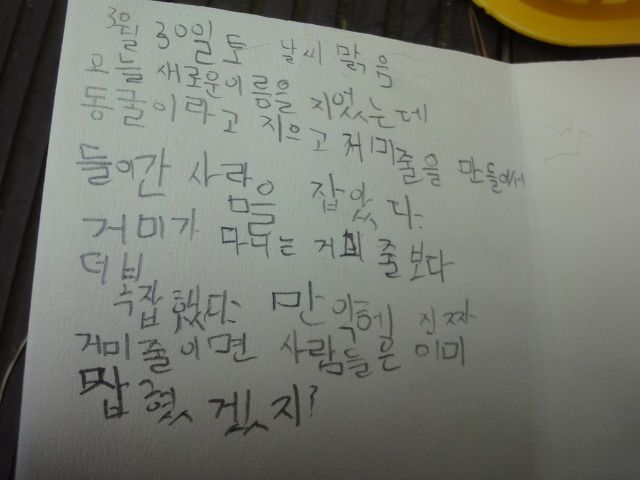 3월 30일 토 날씨 맑음
오늘 새로운이름을
동굴이라고 지었는데
지으고 거미줄을 만들어서
들어간 사람
들을 잡았다.
거미가 만드는 거미줄보다
더 복
잡했다. 만약에 진짜
거미줄이면 사람들은 이미
맙혔겠지?